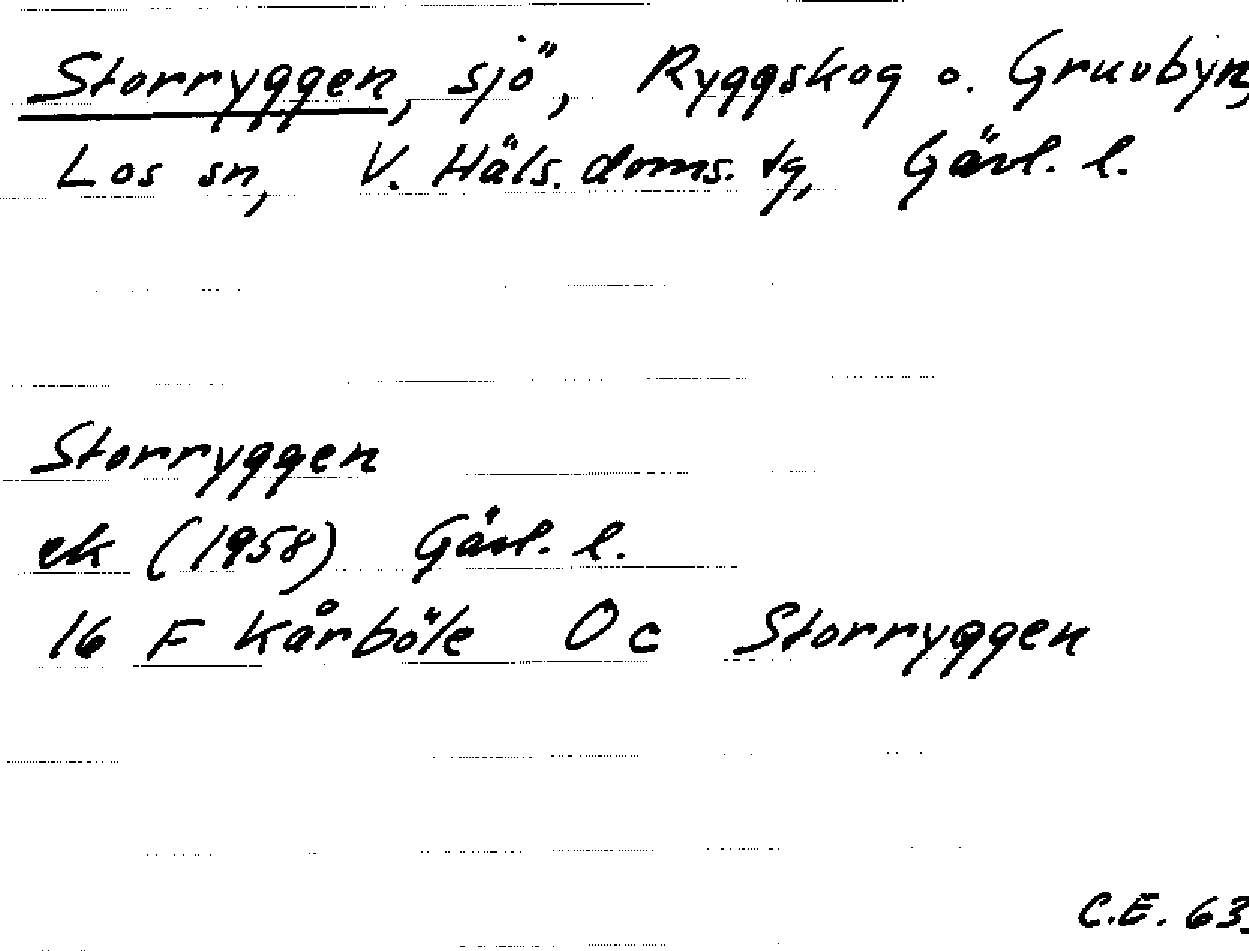 Storryggen, sjö, Ryggskog o. Gruvbyn,
Los sn, V. Häls. doms. tg, Gävl. l.
Storryggen
ek (1958) Gävl. l.
16 F Kårböle 0 c Storryggen
C.E. 63.